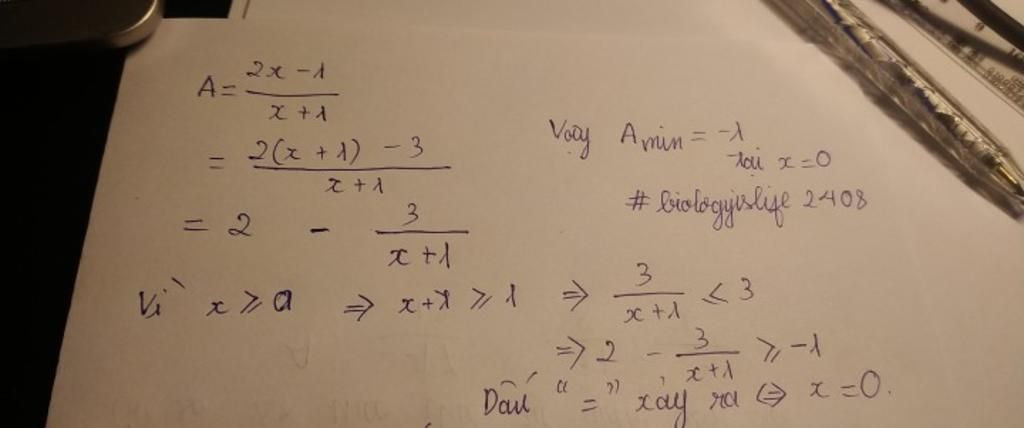 A = \frac{2x - 1}{x + 1}
= \frac{2(x + 1) - 3}{x + 1}
= 2 - \frac{3}{x + 1}
Vì x ⩾ 0 ⇒ x + 1 ⩾ 1 ⇒ \frac{3}{x + 1} ⩽ 3
⇒ 2 - \frac{3}{x + 1} ⩾ -1
Dấu “=” xảy ra ⇔ x = 0.
Vậy A min = -1
tại x = 0
# biologyislife 2408